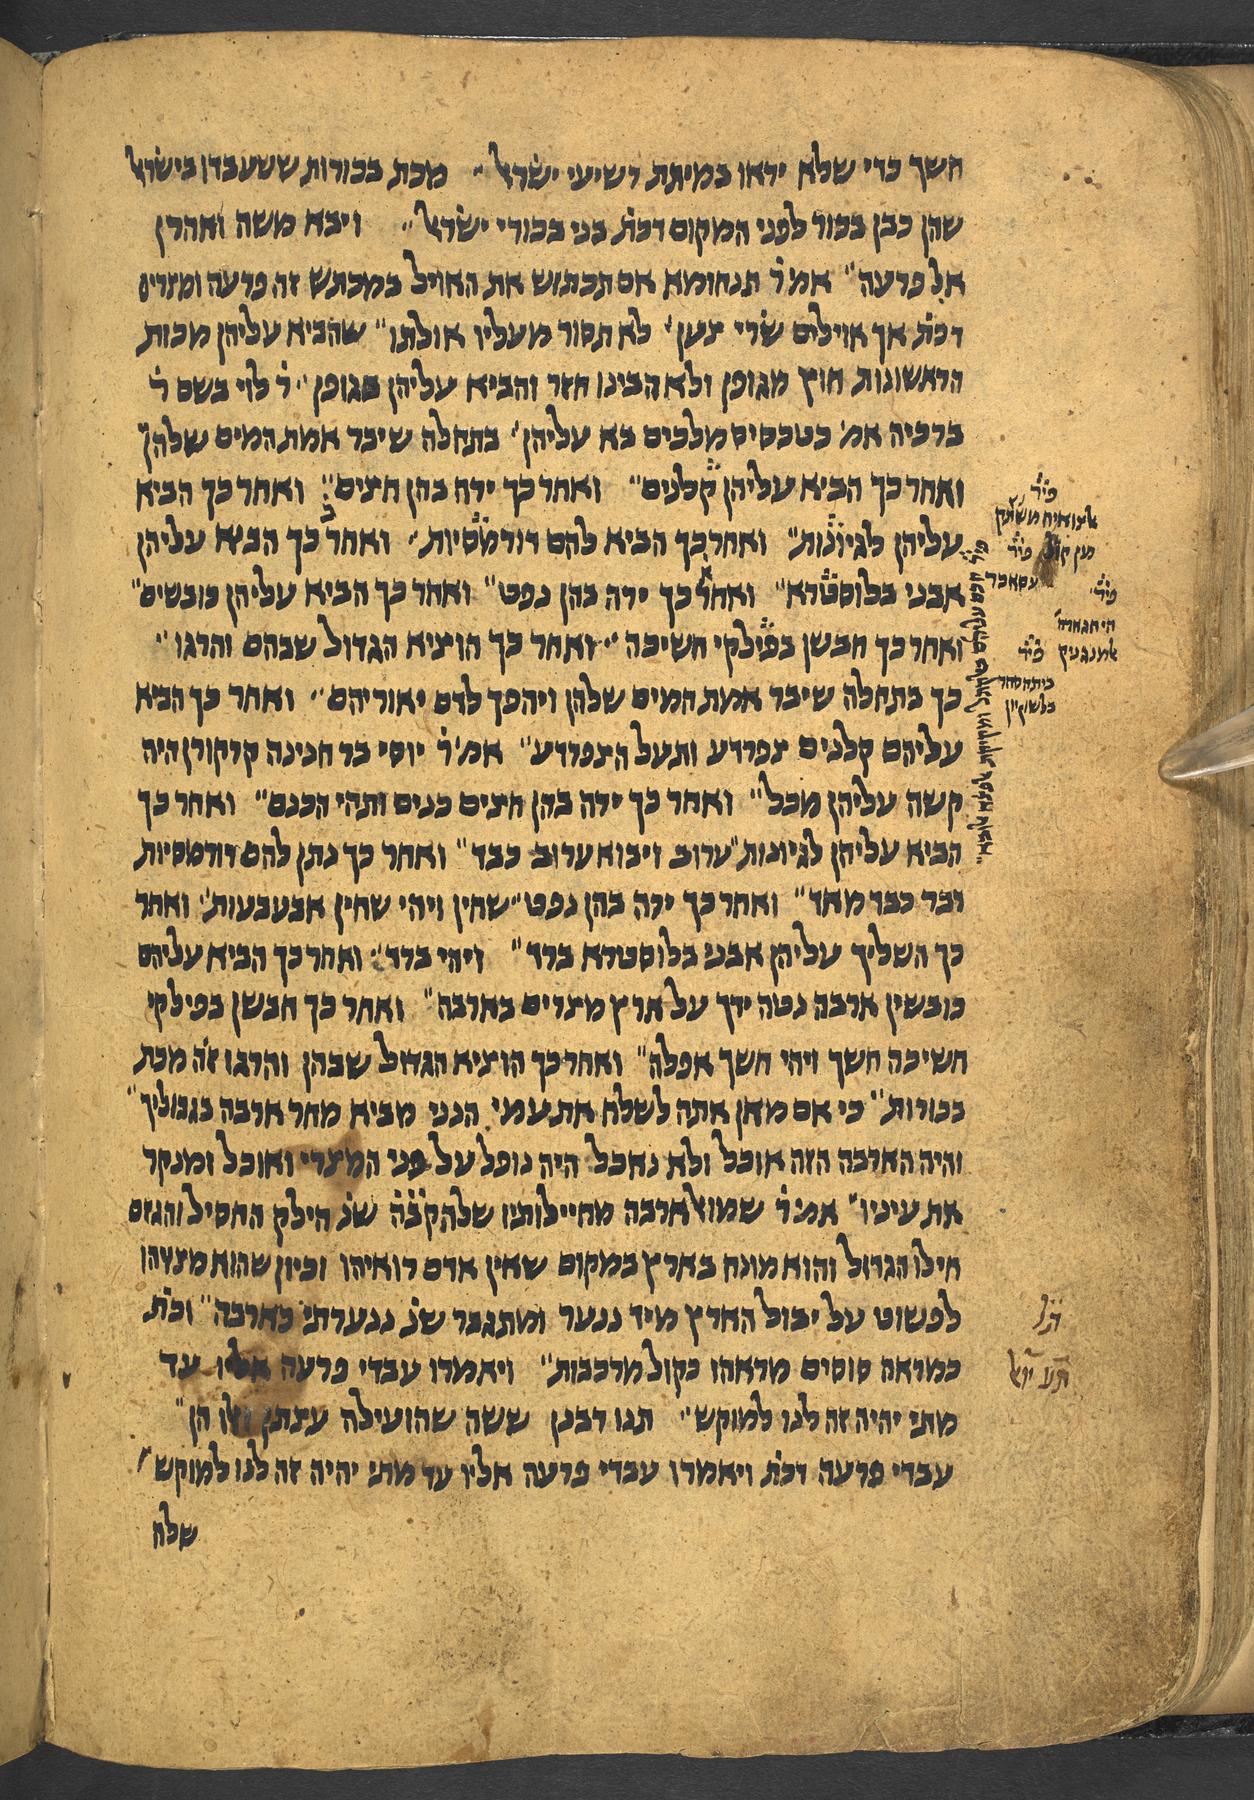 חשך כדי שלא יראו במיתת רשיעי ישראל״ מכת בכורות ששעבדו בישראל
שהן כבן בכור לפני המקום דכת׳ בני בכורי ישראל״ ויבא משה ואהרן
אל פרעה״ אמ׳ ר׳ תנחומא אם תכתוש את האויל במכתש זה פרעה ומצרים
דכת׳ אך אוילים שרי צען׳ לא תסור מעליו אולתו״ שהביא עליהן מכות
הראשונות חוץ מגופן ולא הבינו חזר והביא עליהן בגופן״ ר׳ לוי בשם ר׳
ברכיה אמ׳ בטכסיס מלכים בא עליהן׳ בתחלה שיבר אמת המים שלהן
ואחר כך הביא עליהן קלנים״ ואחר כך ירה בהן חצים״ ואחר כך הביא
עליהן לגיונות״ ואחר כך הביא להם דורמסיות׳ ואחר כך הביא עליהן
אבני בלוסטרא״ ואחר כך ירה בהן נפט״ ואחר כך הביא עליהן כובשים״
ואחר כך חבשן בפולקי חשיכה״ ואחר כך הוציא הגדול שבהם והרגו״
כך בתחלה שיבר אמת המים שלהן ויהפך לדם יאוריהם״ ואחר כך הביא
עליהם קלנים צפרדע ותעל הצפרדע״ אמ׳ ר׳ יוסי בר חנינה קרקורן היה
קשה עליהן מכל״ ואחר כך ירה בהן חצים כנים ותהי הכנם״ ואחר כך
הביא עליהן לגיונות״ ערוב ויבוא ערוב כבד״ ואחר כך נתן להם דורמסיות
דבר כבד מאד״ ואחר כך ירה בהן נפט״ שחין ויהי שחין אבעבעות״ ואחר
כך השליך עליהן אבני בלוסטרא ברד״ ויהי ברד״ ואחר כך הביא עליהם
כובשין ארבה נטה ידך על ארץ מצרים בארבה״ ואחר כך חבשן בפילקי
חשיכה חשך ויהי חשך אפלה״ ואחר כך הוציא הגדול שבהן והרגו זה מכת
בכורות״ כי אם מאן אתה לשלח את עמי הנני מביא מחר ארבה בגבוליך״
והיה הארבה הזה אוכל ולא נאכל היה נופל על פני המצרי ואוכל ומנקר
את עיניו״ אמ׳ ר׳ שמואל ארבה מחיילותיו שלהקבה שנ׳ הילק החסיל והגזם
חילו הגדול והוא מונח בארץ במקום שאין אדם רואיהו וכיון שהוא מצויהו
לפשוט על יבול הארץ מיד ננער ומתגבר שנ׳ ננערתי כארבה״ וכת׳
כמראה סוסים מראהו כקול מרכבות״ ויאמרו עבדי פרעה אליו עד
מתי יהיה זה לנו למוקש״ תנו רבנן ששה שהועילה עצתן ואלו הן״
עבדי פרעה דכת׳ ויאמרו עבדי פרעה אליו עד מתי יהיה זה לנו למוקש״
שלח
פיר׳
פיר׳
פיר׳
אלמנגניק פיר׳